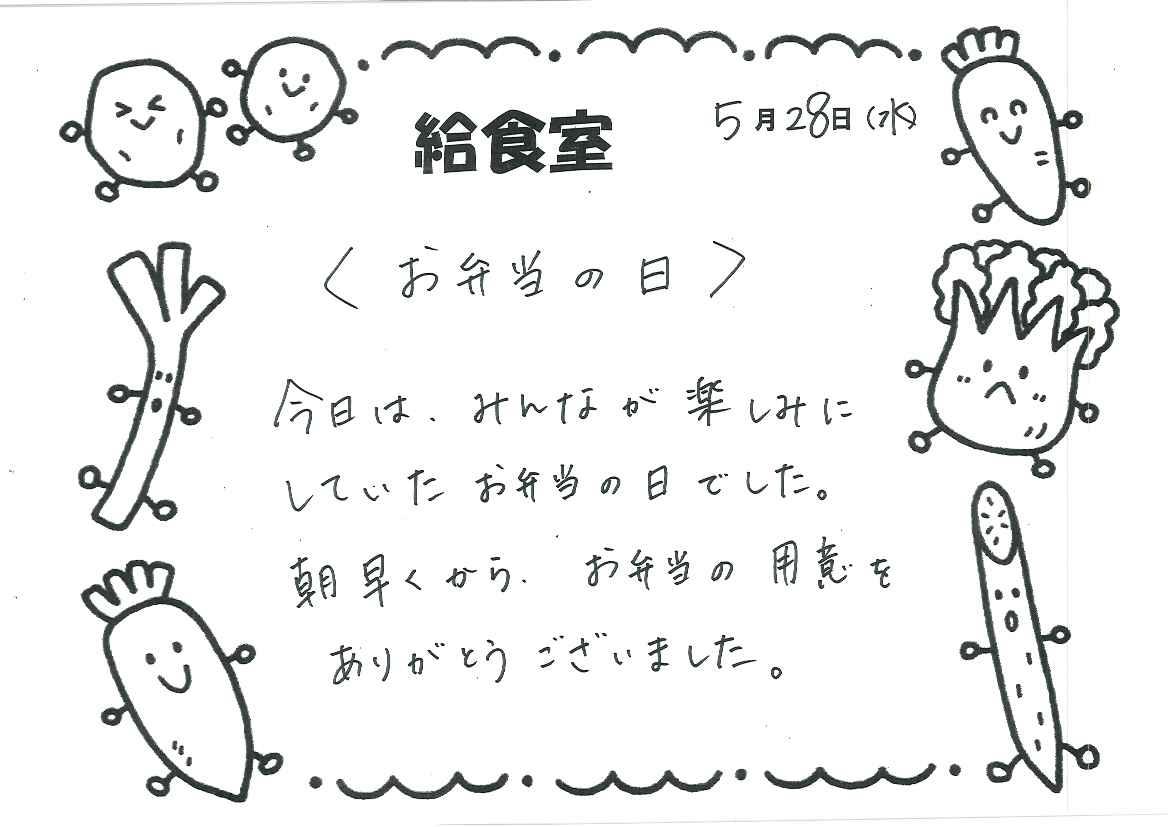 給食室
5月28日(水)
〈お弁当の日〉
今日は、みんなが楽しみに
していたお弁当の日でした。
朝早くから、お弁当の用意を
ありがとうございました。